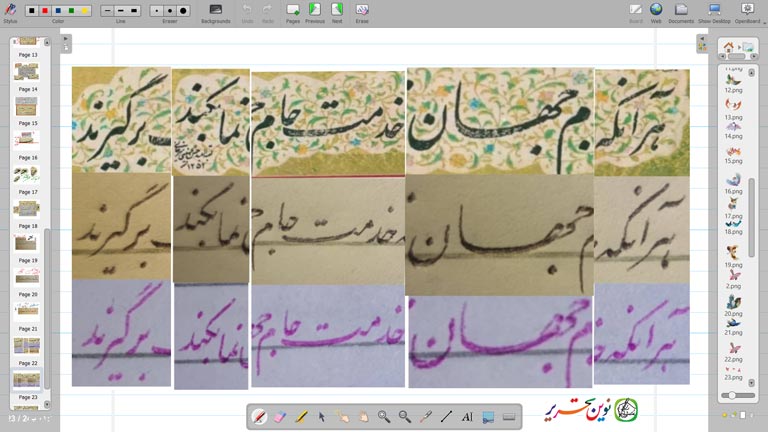 Stylus Color Line Eraser Backgrounds Undo Redo Pages Previous Next Erase Board Web Documents Show Desktop OpenBoard
Page 13
Page 14
Page 15
Page 16
Page 17
Page 18
Page 19
Page 20
Page 21
Page 22
Page 23
هرانکه م جهان خدمت جام نما بکند برگیرند
هرانکه م جهان خدمت جام نما بکند برگیرند
هرانکه م جهان خدمت جام نما بکند برگیرند
12.png
13.png
14.png
15.png
16.png
17.png
18.png
19.png
2.png
20.png
21.png
22.png
23.png
نوین تحریر